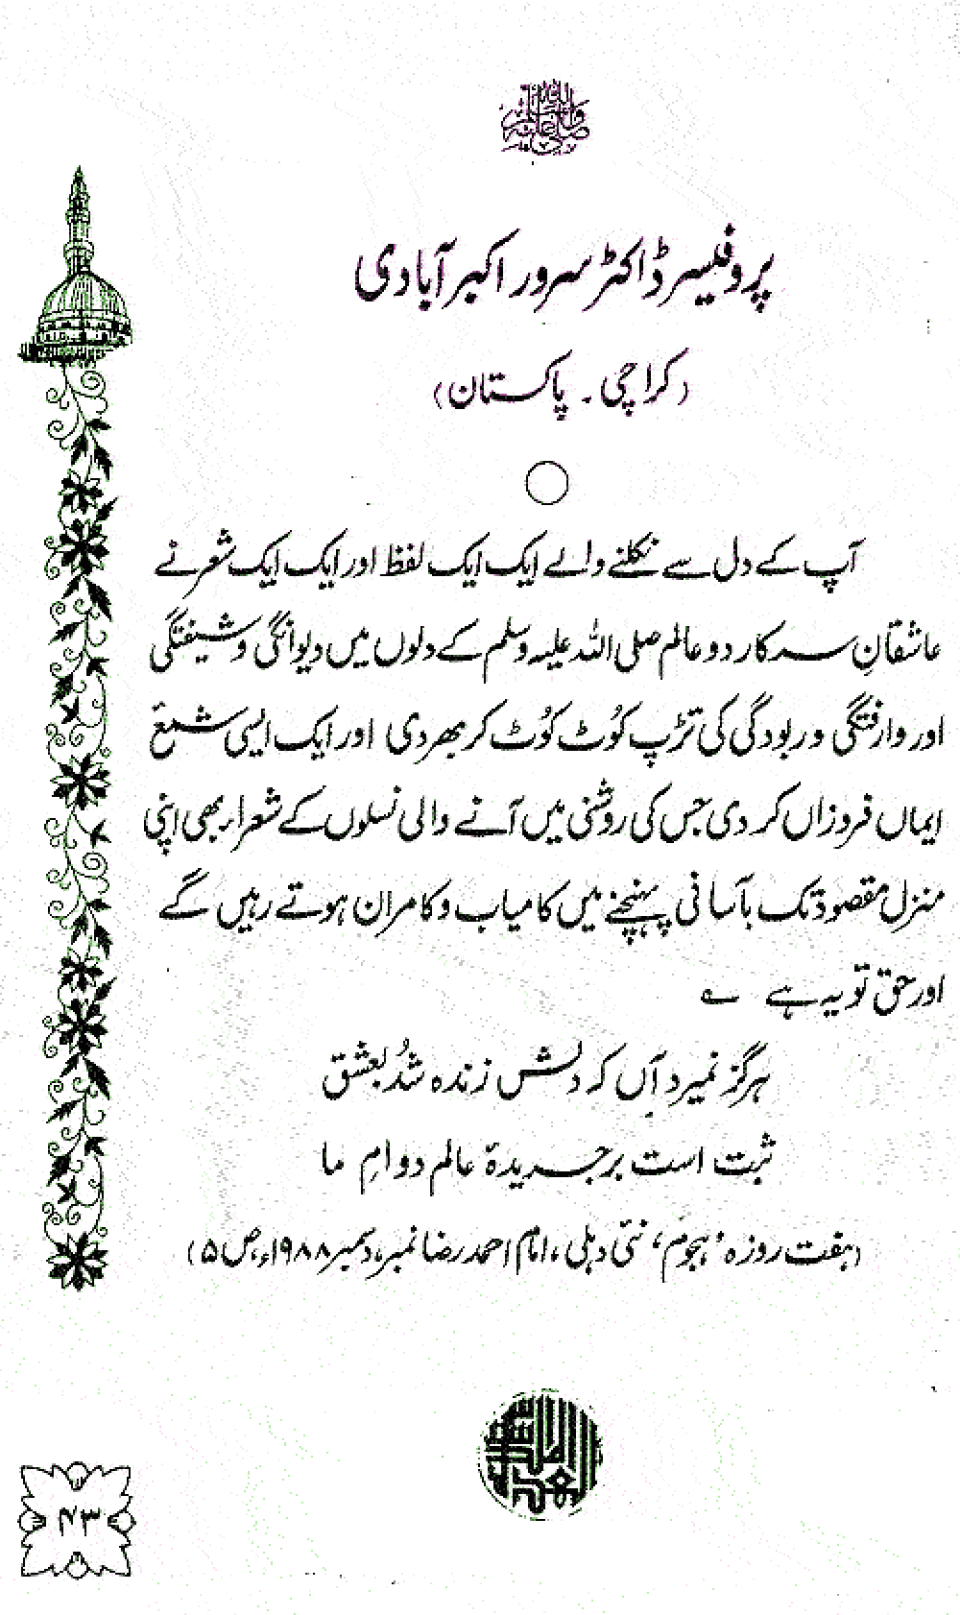 ﷺ
پروفیسر ڈاکٹر سرور اکبر آبادی
(کراچی ۔ پاکستان)
آپ کے دل سے نکلنے والے ایک ایک لفظ اور ایک ایک شعر نے
عاشقانِ سرکار دو عالم صلی اللہ علیہ وسلم کے دلوں میں دیوانگی و شیفتگی
اور وارفتگی و ربودگی کی تڑپ کُوٹ کُوٹ کر بھر دی اور ایک ایسی شمعِ
ایماں فروزاں کر دی جس کی روشنی میں آنے والی نسلوں کے شعراء بھی اپنی
منزلِ مقصود تک بآسانی پہنچنے میں کامیاب و کامران ہوتے رہیں گے
اور حق تو یہ ہے ؎
ہرگز نمیرد آں کہ دلش زندہ شُد بعشق
ثبت است بر جریدۂ عالم دوامِ ما
(ہفت روزہ ’ہجوم‘ نئی دہلی، امام احمد رضا نمبر، دسمبر ۱۹۸۸ء، ص ۵)
۷۳